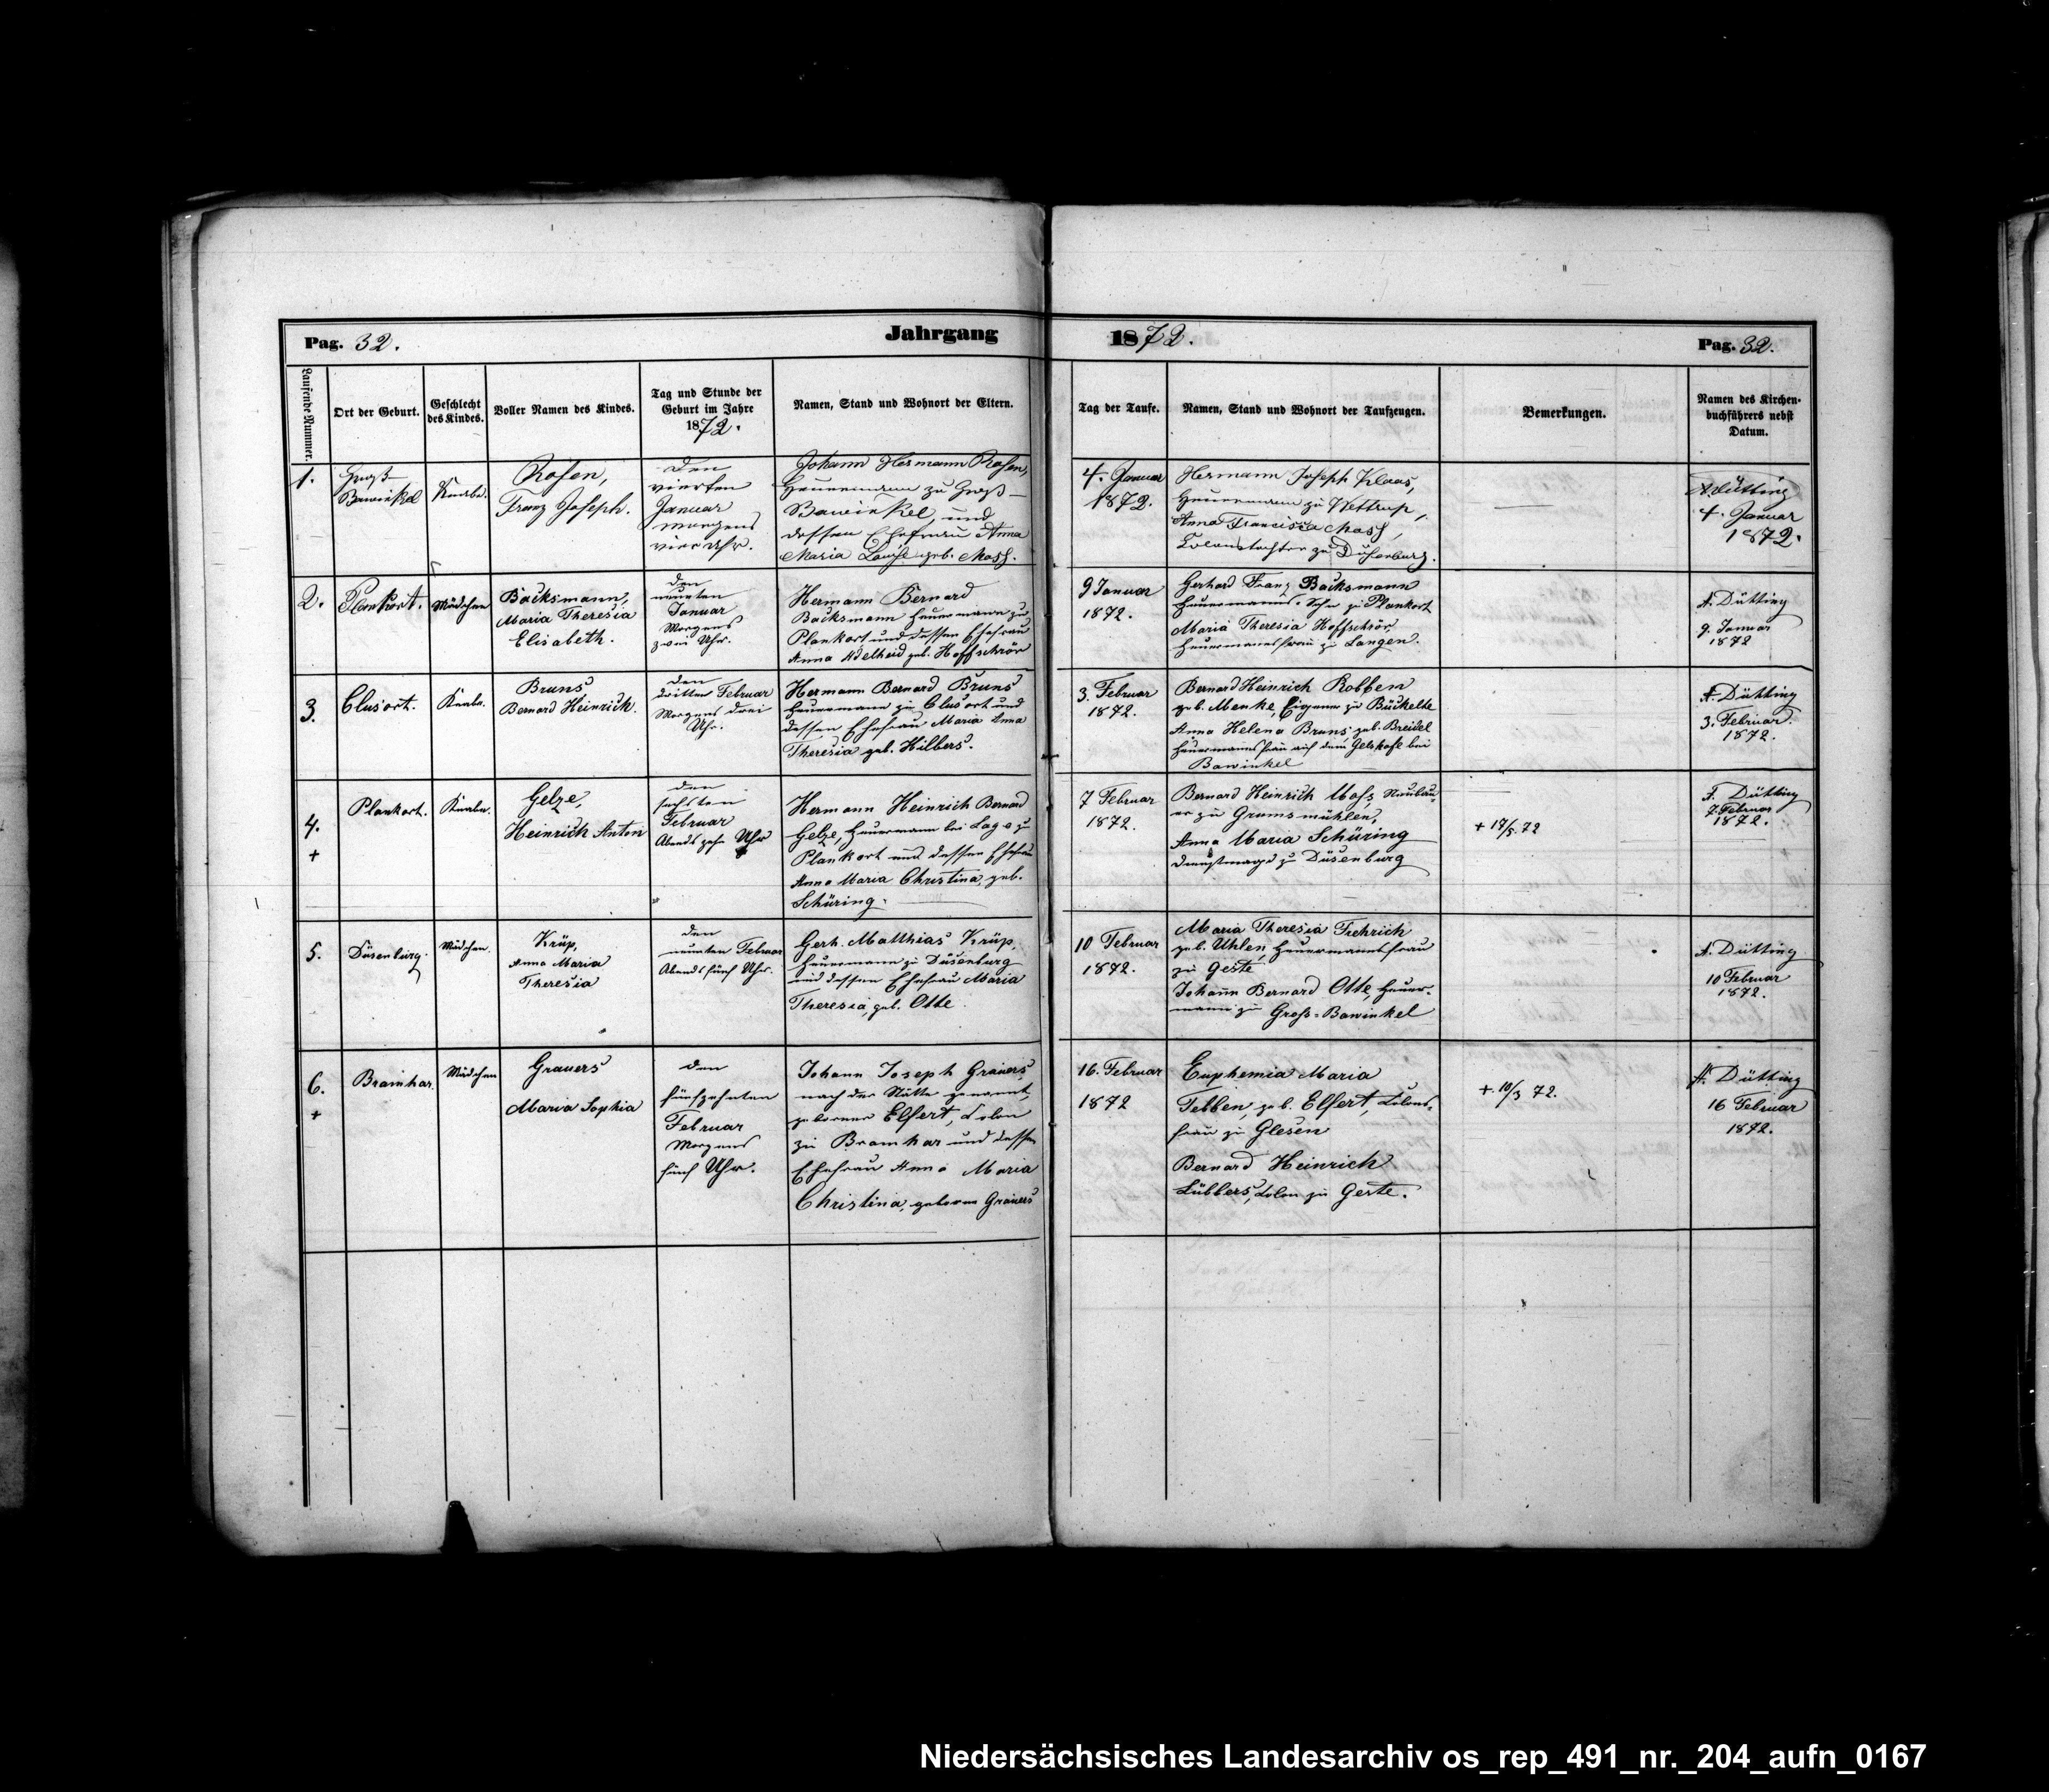 Pag. 32.
Jahrgang
1872.
Pag. 32.
Laufende Nummer.
Ort der Geburt.
Geschlecht
des Kindes.
Voller Namen des Kindes.
Tag und Stunde der
Geburt im Jahre
1872.
Namen, Stand und Wohnort der Eltern.
Tag der Taufe.
Namen, Stand und Wohnort der Taufzeugen.
Bemerkungen.
Namen des Kirchen-
buchführers nebst
Datum.
1.
Groß-
Bawinkel
Knabe.
Rosen,
Franz Joseph.
Den
vierten
Januar
morgens
vier Uhr.
Johann Hermann Rosen,
Heuermann zu Groß-
Bawinkel und
dessen Ehefrau Anna
Maria Louise geb. Moss.
4. Januar
1872.
Hermann Joseph Klaas,
Heuermann zu Wettrup,
Anna Francisca Moss,
Colonstochter zu Düsenburg.
A. Dütting
4. Januar
1872.
2.
Plankort.
Mädchen
Backsmann,
Maria Theresia
Elisabeth.
den
neunten
Januar
Morgens
zwei Uhr.
Hermann Bernard
Backsmann Heuermann zu
Plankort und dessen Ehefrau
Anna Adelheid geb. Hoffschrör
9 Januar
1872.
Gerhard Franz Backsmann
Heuermanns-Sohn zu Plankort
Maria Theresia Hoffschrör
Heuermannsfrau zu Langen.
A. Dütting
9. Januar
1872
3.
Clusort.
Knabe.
Bruns
Bernard Heinrich.
den
dritten Februar
Morgens drei
Uhr.
Hermann Bernard Bruns
Heuermann zu Clusort und
dessen Ehefrau Maria Anna
Theresia geb. Hilbers.
3. Februar
1872.
Bernard Heinrich Robben
geb. Menke, Eigener zu Bückelte
Anna Helena Bruns, geb. Breidel
Heuermannsfrau auf dem Gelshofe bei
Bawinkel
A. Dütting
3. Februar
1872.
4.
+
Plankort.
Knabe.
Gelze,
Heinrich Anton
den
sechsten
Februar
Abends zehn Uhr
Hermann Heinrich Bernard
Gelze, Heuermann bei Lage zu
Plankort und dessen Ehefrau
Anna Maria Christina, geb.
Schüring.
7 Februar
1872.
Bernard Heinrich Moss, Neubau-
er zu Grumsmühlen,
Anna Maria Schüring
Dienstmagd zu Düsenburg
+ 17/5. 72
A. Dütting
7. Februar
1872.
5.
Düsenburg.
Mädchen.
Krüp,
Anna Maria
Theresia
den
neunten Februar
Abends fünf Uhr.
Gerh. Matthias Krüp,
Heuermann zu Düsenburg
und dessen Ehefrau Maria
Theresia, geb. Otte
10 Februar
1872.
Maria Theresia
geb. Uhlen, Heuermannsfrau
zu Geste
Johann Bernard Otte, Heuer-
mann zu Gross-Bawinkel
A. Dütting
10 Februar
1872.
6.
+
Bramhar.
Mädchen
Grauers
Maria Sophia
den
fünfzehnten
Februar
Morgens
fünf Uhr.
Johann Joseph Grauers,
nach der Stätte genannt,
geborner Elfert, Colon
zu Bramhar und dessen
Ehefrau Anna Maria
Christina, geborne Grauers
16. Februar
1872
Euphemia Maria
Tebben, geb. Elfert, Colons-
frau zu Glesen
Bernard Heinrich
Lübbers, Colon zu Geste.
+ 10/3 72.
A. Dütting
16 Februar
1872.
Niedersächsisches Landesarchiv os_rep_491_nr._204_aufn_0167